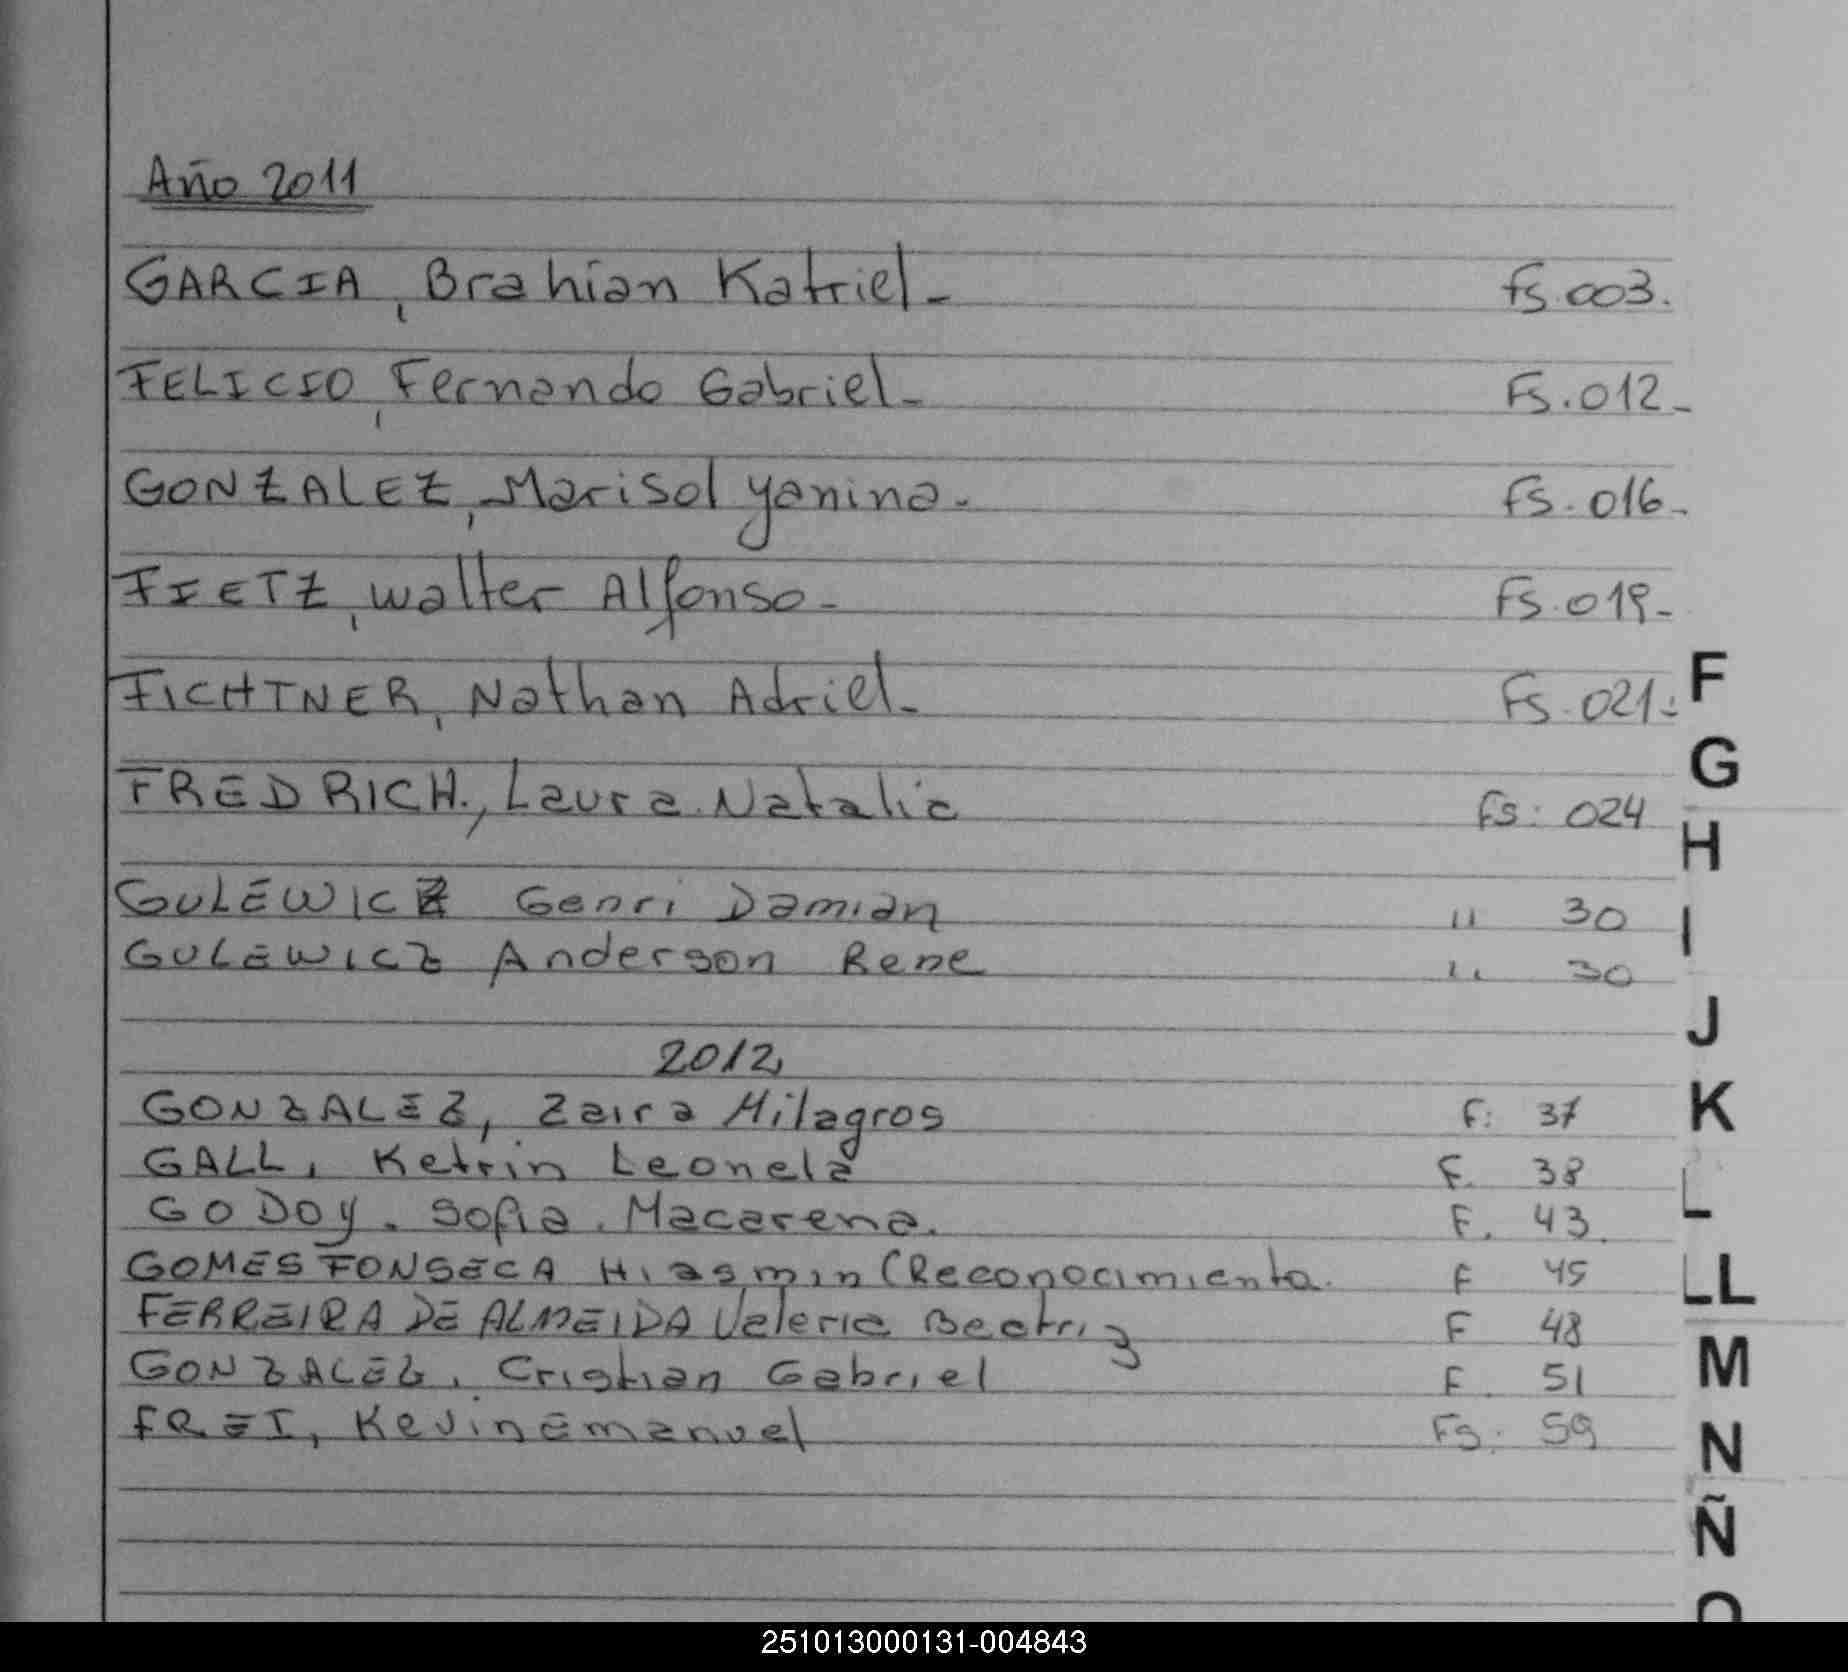 Año 2011
GARCIA, Brahian Katriel- fs.003.
FELICIO, Fernando Gabriel- Fs.012-
GONZALEZ, Marisol yanina- fs.016-
FIETZ, walter Alfonso- Fs.019-
FICHTNER, Nathan Adriel- Fs.021-
FREDRICH., Laura.Natalia Fs: 024
GULEWICZ Genri Damian " 30
GULEWICZ Anderson Rene " 30
2012
GONZALEZ, Zaira Milagros F: 37
GALL, Ketrin Leonela F. 38
GODOY. Sofia. Macarena. F. 43.
GOMES FONSECA Hiasmin (Reconocimiento. F 45
FERREIRA DE ALMEIDA Valeria Beatriz F 48
GONZALEZ, Cristian Gabriel F. 51
FREI, Kevin Emanuel Fs: 59
F
G
H
I
J
K
L
LL
M
N
Ñ
O
251013000131-004843